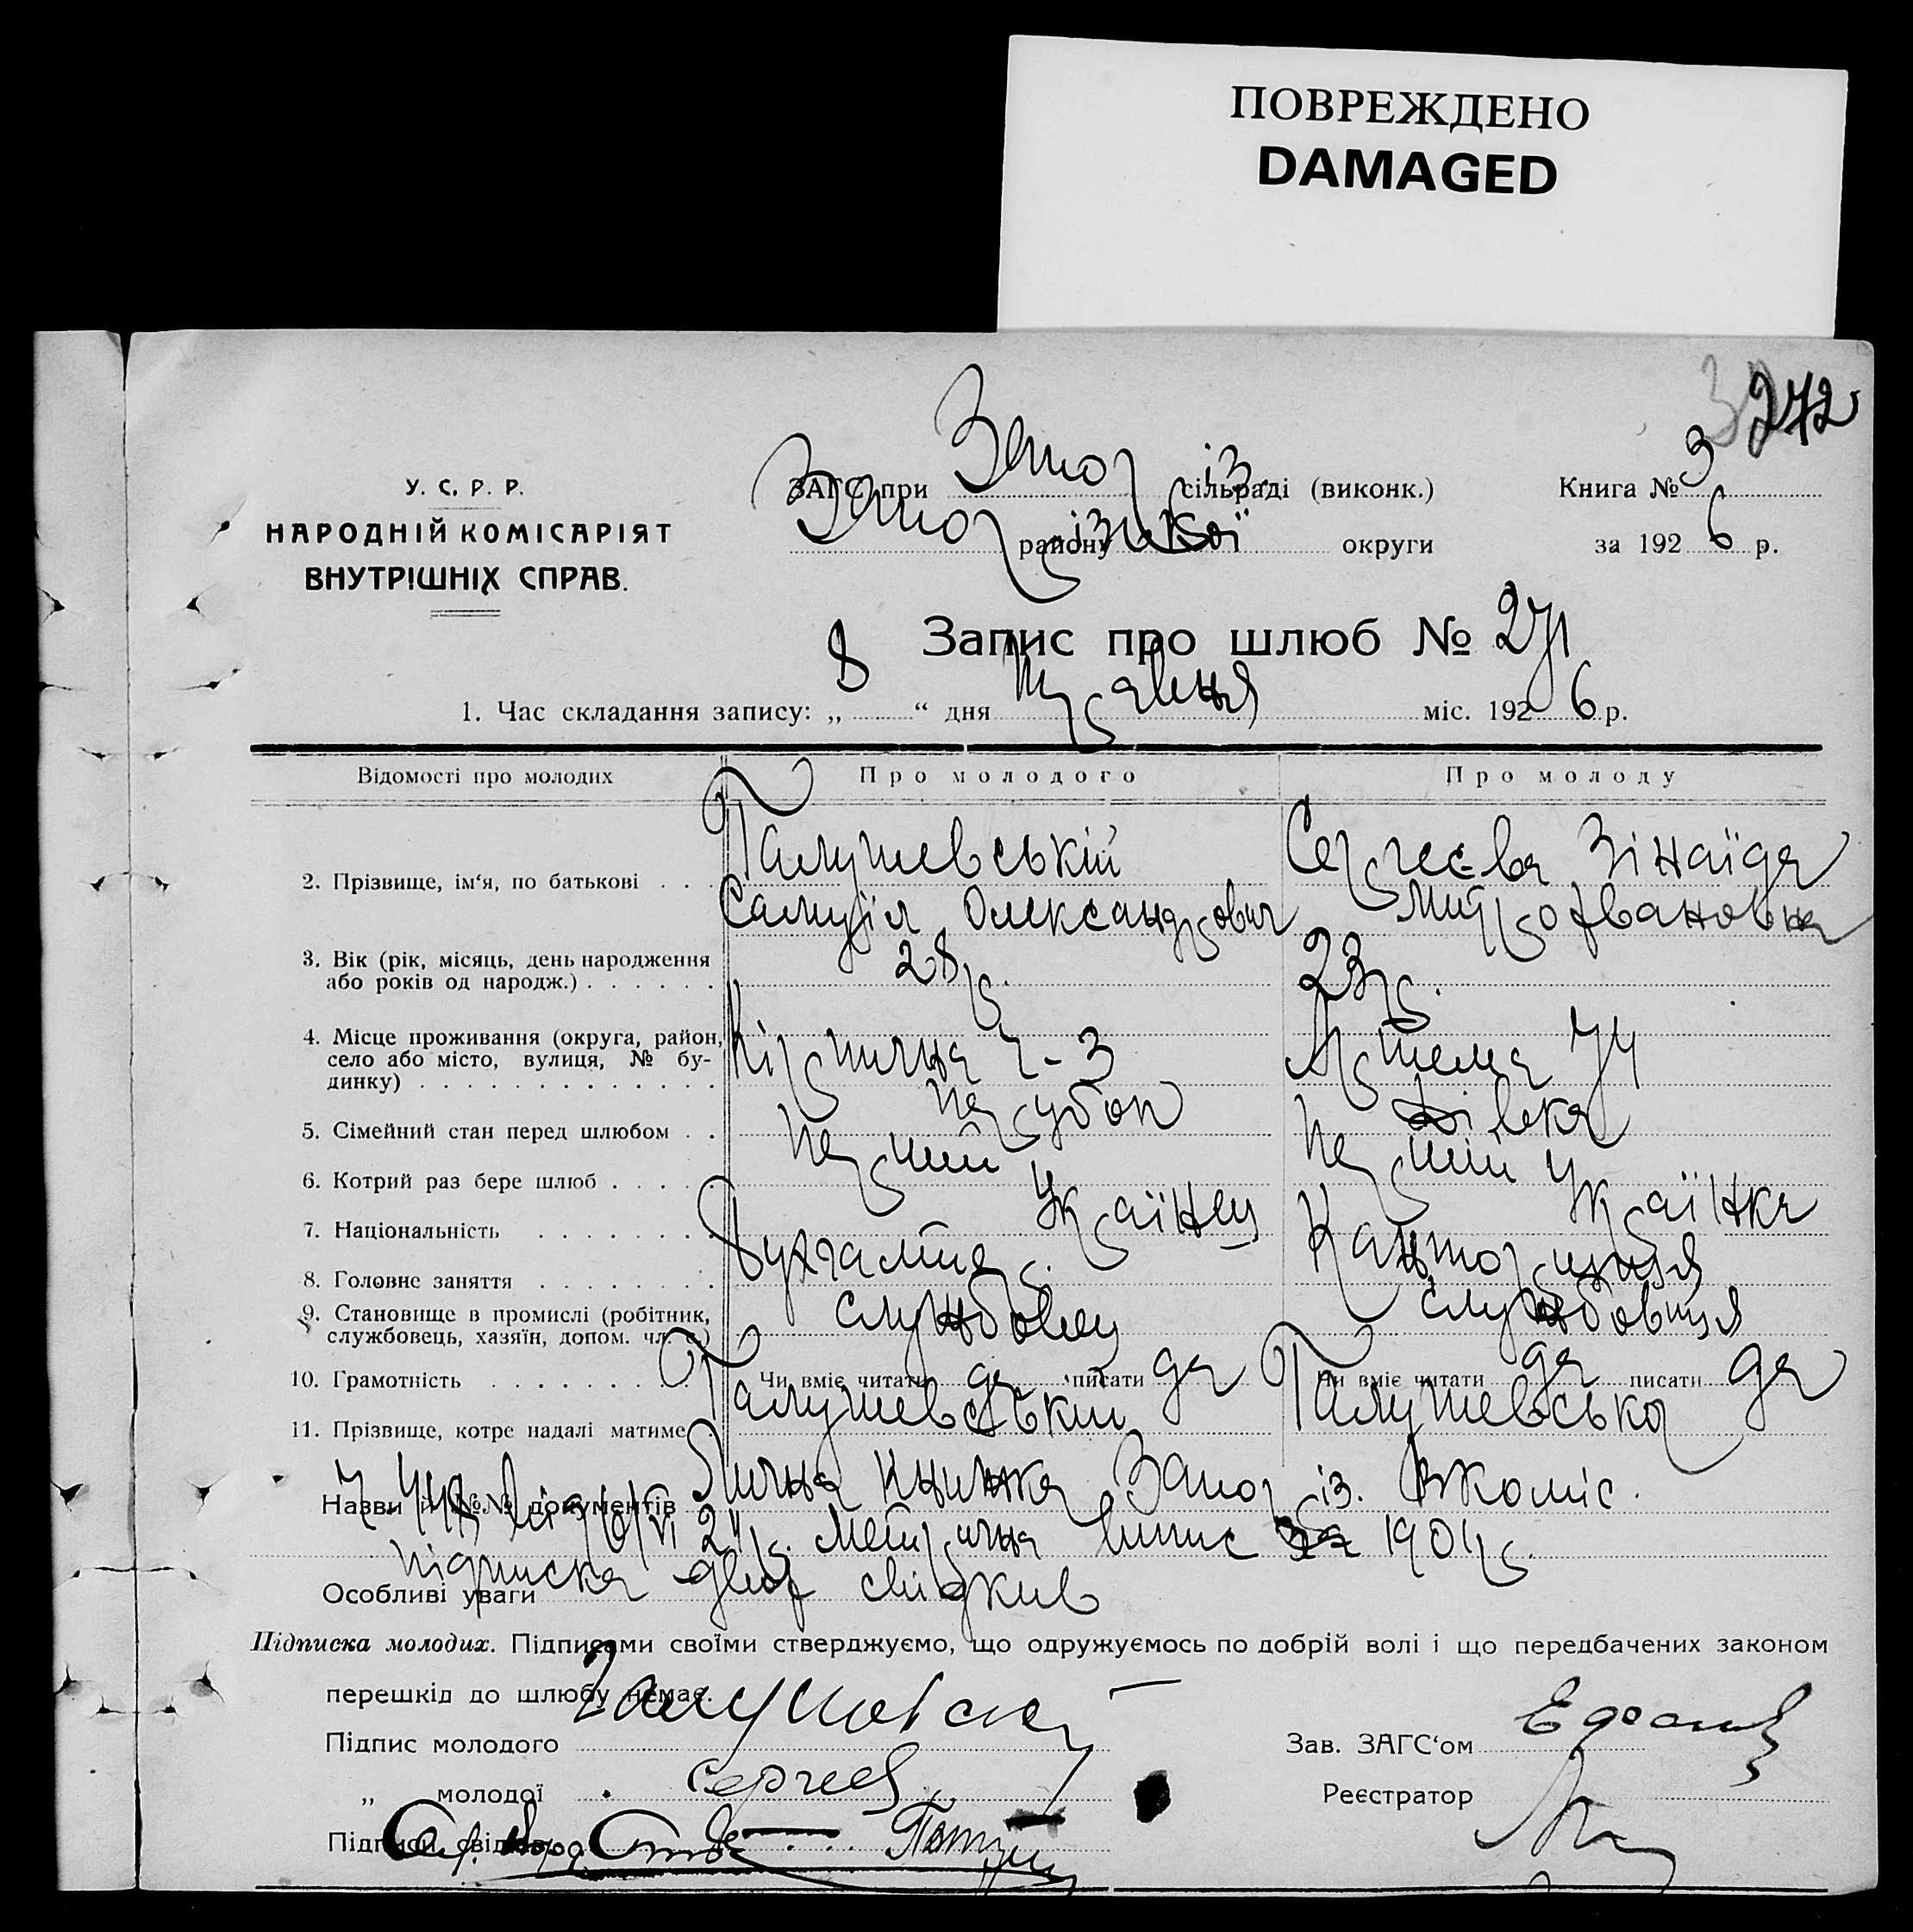 ПОВРЕЖДЕНО
DAMAGED
272
У. С. Р. Р.
НАРОДНІЙ КОМІСАРІЯТ
ВНУТРІШНІХ СПРАВ.
ЗАГС при Запоріз. сільраді (виконк.)
Книга № 3
району Запорізької округи
за 1926 р.
Запис про шлюб № 271
1. Час складання запису: „ 8 “ дня травня міс. 1926 р.
Відомості про молодих
Про молодого
Про молоду
2. Прізвище, ім‘я, по батькові . . .
Галушевській
Самуїл Олександрович
Сергеєва Зінаїда
Митрофановна
3. Вік (рік, місяць, день народження
або років од народж.) . . . . . .
28 р.
23 р.
4. Місце проживання (округа, район,
село або місто, вулиця, № бу-
динку) . . . . . . . . . . . . .
Кірпична 2-3
Артема 74
5. Сімейний стан перед шлюбом . .
парубок
дівка
6. Котрий раз бере шлюб . . . . .
перший
перший
7. Національність . . . . . . .
Українец
Українка
8. Головне заняття . . . . . . .
Бухгалтер
9. Становище в промислі (робітник,
службовець, хазяїн, допом. чл. с.)
службовец
службовиця
10. Грамотність . . . . . . . .
Чи вміє читати да писати да
Чи вміє читати да писати да
11. Прізвище, котре надалі матиме
Галушевський
Галушевська
Назви й №№ документів
Лична книжка Запоріз. Вкоміс.
24 р. Метрична випис за 1904 р.
Особливі уваги підписка двох свідків
Підписка молодих. Підписами своїми стверджуємо, що одружуємось по добрій волі і що передбачених законом
перешкід до шлюбу немає.
Підпис молодого
Зав. ЗАГС‘ом
„ молодої Сергеев
Реєстратор
Підписи свідків